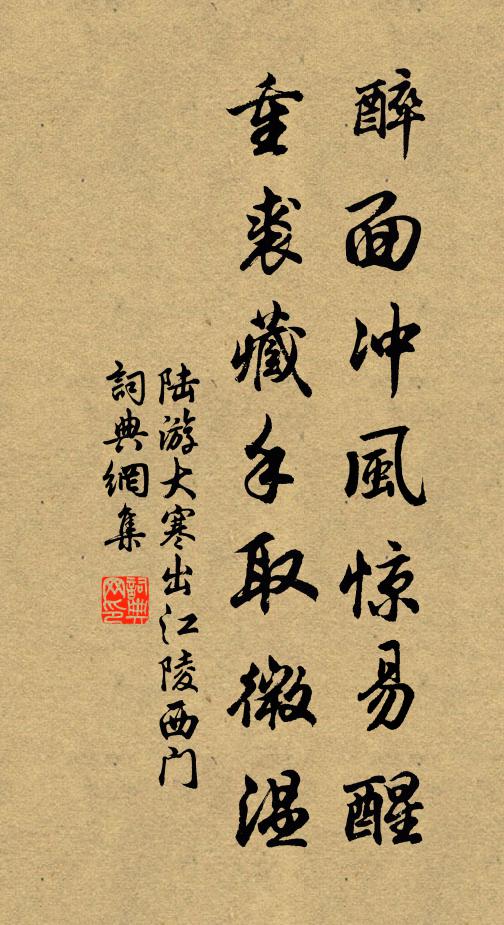 醉面冲風惊易醒
重裘藏手取微温
陆游大寒出江陵西门
詞典網集
詞典网印